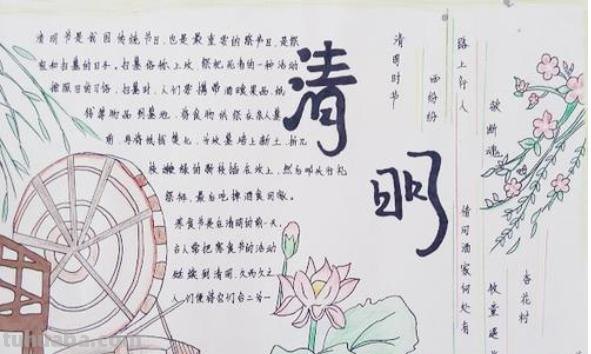 清明节是我国传统节日，也是最重要的祭节日，是祭
祖和扫墓的日子。扫墓俗称上坟，祭祀死者的一种活动
按照旧的习俗，扫墓时，人们要携带酒食果品，纸
钱等物品到墓地，将食物供祭在亲人墓
前，再将纸钱焚化，为坟墓培上新土，折几
枝嫩绿的新枝插在坟上，然后叩头行礼
祭拜，最后吃掉酒食回家。
寒食节是在清明的前一天，
古人常把寒食节的活动
延续到清明，久而久之
人们便将它们合二为一
清明
清明时节
雨纷纷
路上行人
欲断魂
借问酒家何处有
牧童遥
杏花村
tuhuaba.com